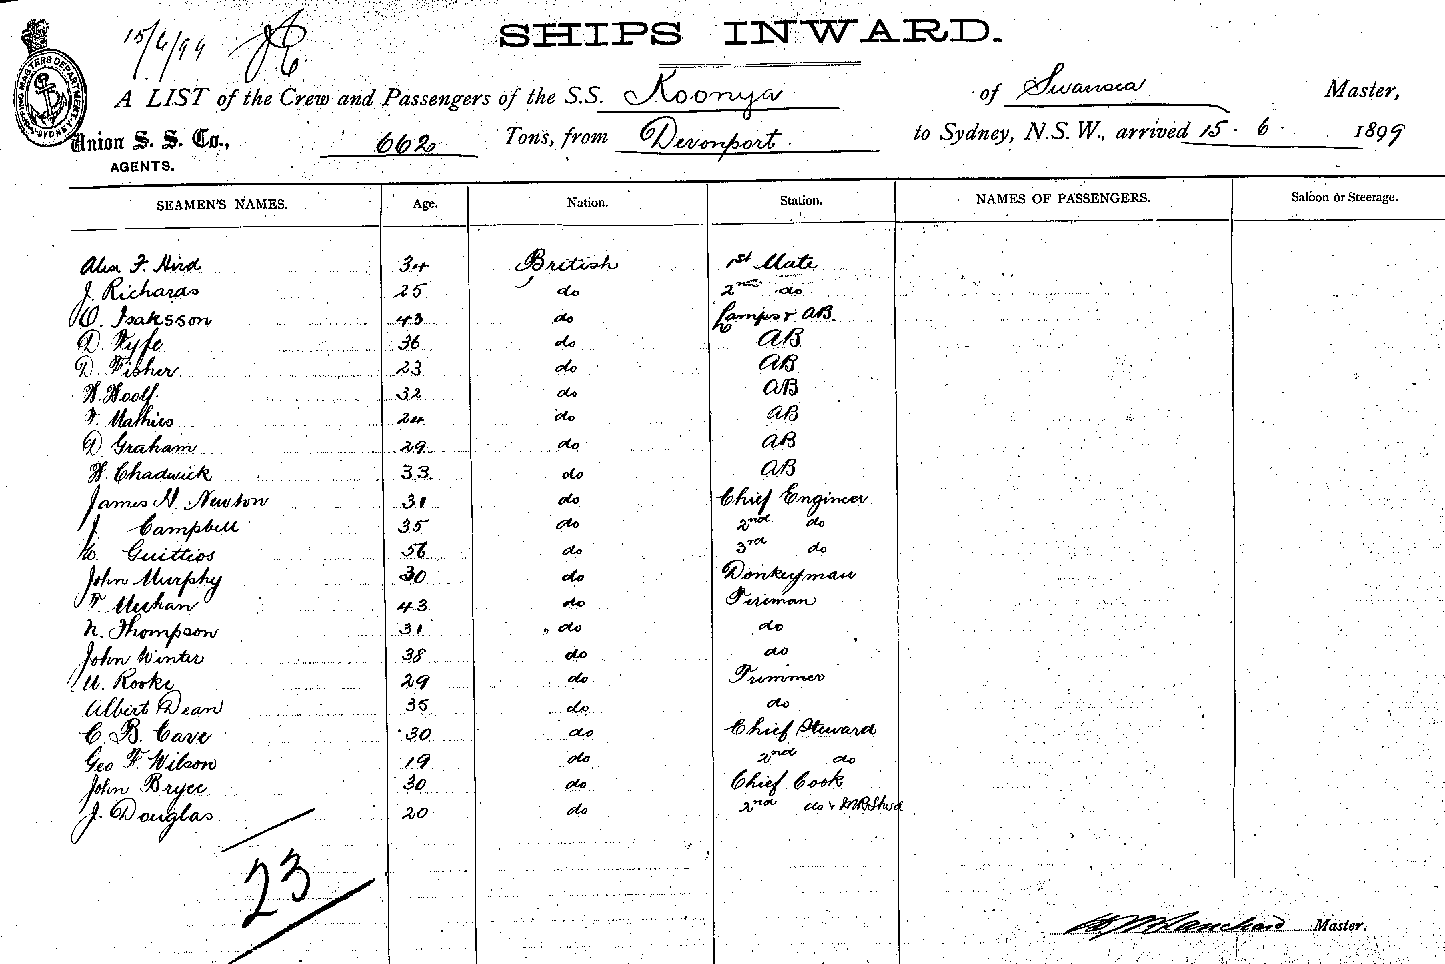 15/6/99
SHIPS INWARD.
A LIST of the Crew and Passengers of the S.S. Koonya of Swansea Master,
Union S. S. Co., 662 Tons, from Devonport to Sydney, N.S.W., arrived 15. 6. 1899
AGENTS.
SEAMEN'S NAMES. Age. Nation. Station. NAMES OF PASSENGERS. Saloon or Steerage.
Alex F. Hird 34 British 1st Mate
J. Richards 25 do 2nd do
O. Isaksson 43 do Lamps & AB
D. Fyfe 36 do AB
D. Fisher 23 do AB
W. Woolf 32 do AB
F. Mathies 24 do AB
D Graham 29 do AB
W. Chadwick 33 do AB
James H. Newton 31 do Chief Engineer
J. Campbell 35 do 2nd do
56 do 3rd do
John Murphy 30 do Donkeyman
F. Meehan 43 do Fireman
N. Thompson 31 do do
John Winter 38 do do
Rooke 29 do Trimmer
Albert Dean 35 do do
C. B. Cave 30 do Chief Steward
Geo F. Wilson 19 do 2nd do
John Bryce 30 do Chief Cook
J. Douglas 20 do 2nd do &
23
Master.